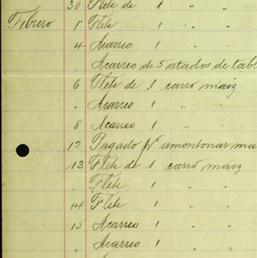 30 Flete de 1 " "
Febrero 1 Flete 1 " "
4 Acarreo 1 " "
" Acarreo de 5 atados de tabl
6 Flete de 1 carro maiz
" Acarreo 1 " "
8 Acarreo 1 " "
12 Pagado pr amontonar ma
13 Flete de 1 carro maiz
" Flete 1 " "
14 Flete 1 " "
15 Acarreo 1 " "
" Acarreo 1 " "